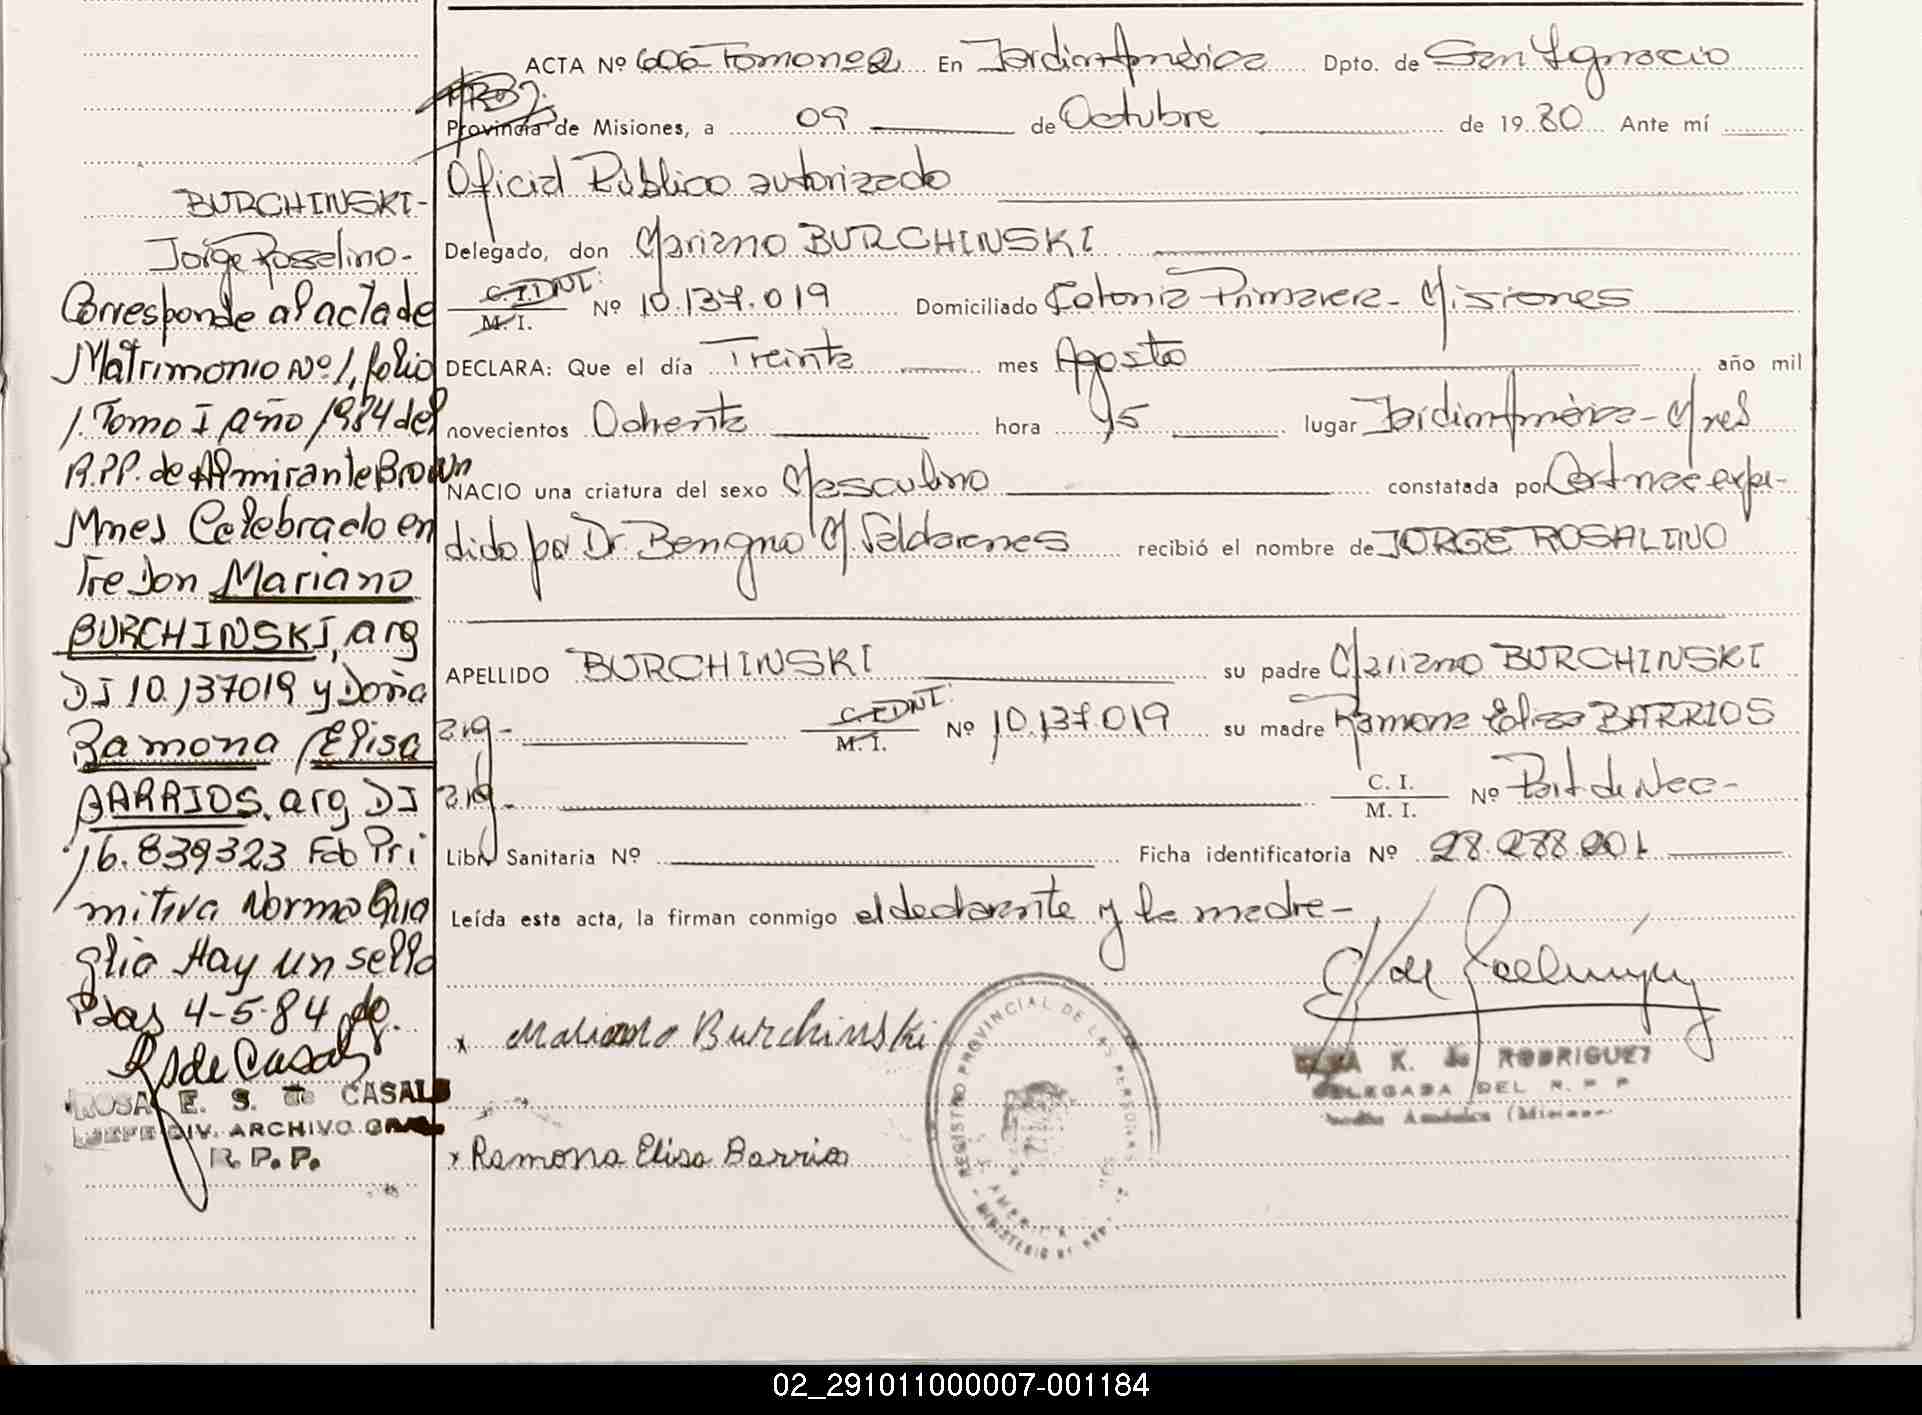 ACTA Nº 606 Tomo nº 2 En Jardín América Dpto. de San Ignacio
Provincia de Misiones, a 09 de Octubre de 1980 Ante mí
Oficial Público autorizado
Delegado, don Mariano BURCHINSKI
C.I. DNI: M. I. Nº 10.137.019 Domiciliado Colonia Primavera - Misiones
DECLARA: Que el día Treinta mes Agosto año mil
novecientos Ochenta hora 15 lugar Jardín América - Mnes
NACIO una criatura del sexo Masculino constatada por Cert nac expe-
dido por Dr. Benigno M. recibió el nombre de JORGE ROSALINO
APELLIDO BURCHINSKI su padre Mariano BURCHINSKI
arg- C.I. DNI: M. I. Nº 10.137.019 su madre Ramona Elisa BARRIOS
arg- C. I. M. I. Nº Part de Nac-
Libr Sanitaria Nº Ficha identificatoria Nº 28.288.201
Leída esta acta, la firman conmigo el declarante y la madre-
x Mariano Burchinski
x Ramona Elisa Barrios
REGISTRO PROVINCIAL DE LAS PERSONAS
K. de RODRIGUEZ
DELEGADA DEL R. P. P
BURCHINSKI-
Jorge Rosalino-
Corresponde al acta de
Matrimonio Nº 1, folio
1. Tomo I año 1984 del
R.P.P. de Almirante Brown
Mnes Celebrado en
Tre Don Mariano
BURCHINSKI, arg
DI 10.137019 y Doña
Ramona Elisa
BARRIOS. arg DI
16.839323 Fdo Pri
mitiva Norma Qua
glia Hay un sello
Pdas 4-5-84
RS de Casals
ROSA E. S. de CASALS
JEFE DIV. ARCHIVO GRAL
R. P. P.
02_291011000007-001184